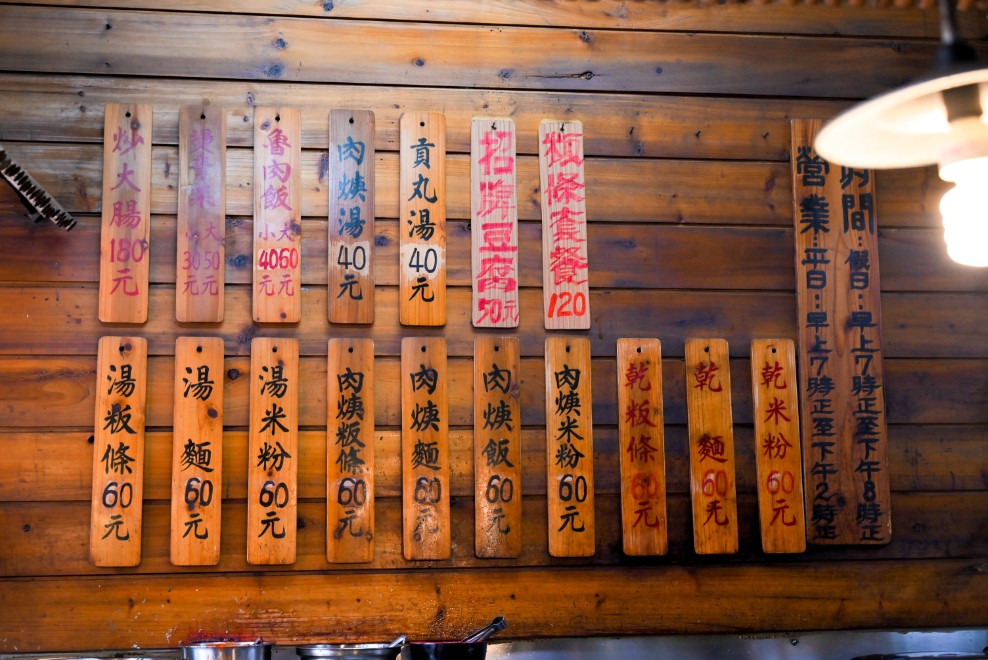 炒大腸180元
燙青菜小30元大50元
魯肉飯小40元大60元
肉焿湯40元
貢丸湯40元
招牌豆腐50元
粄條套餐120
湯粄條60元
湯麵60元
湯米粉60元
肉焿粄條60元
肉焿麵60元
肉焿飯60元
肉焿米粉60元
乾粄條60元
乾麵60元
乾米粉60元
營業：平日：早上7時正至下午2時正
時間：假日：早上7時正至下午8時正